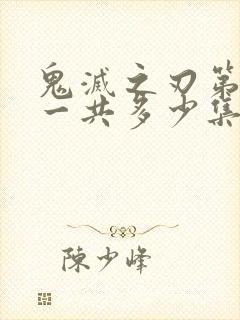 鬼滅之刃第
一共多少集
陳少峰